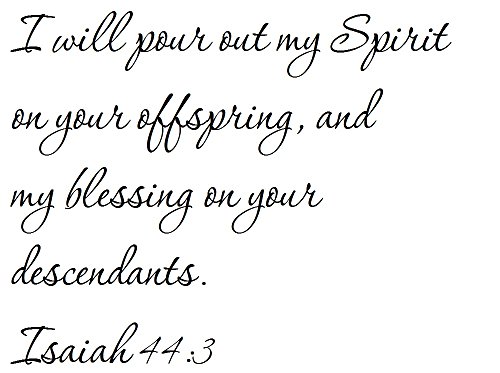 I will pour out my Spirit
on your offspring, and
my blessing on your
descendants.
Isaiah 44:3